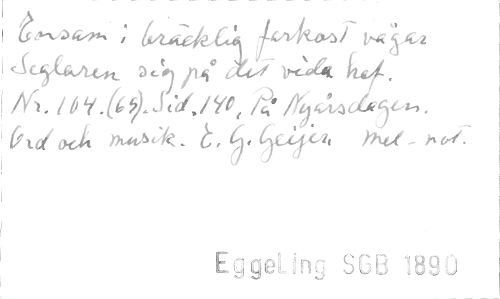 Ensam i bräcklig farkost vågar
Seglaren sig på det vida haf.
Nr. 104. (65). Sid. 140. På Nyårsdagen.
Ord och musik. E. G. Geijer mel-not.
Eggeling SGB 1890